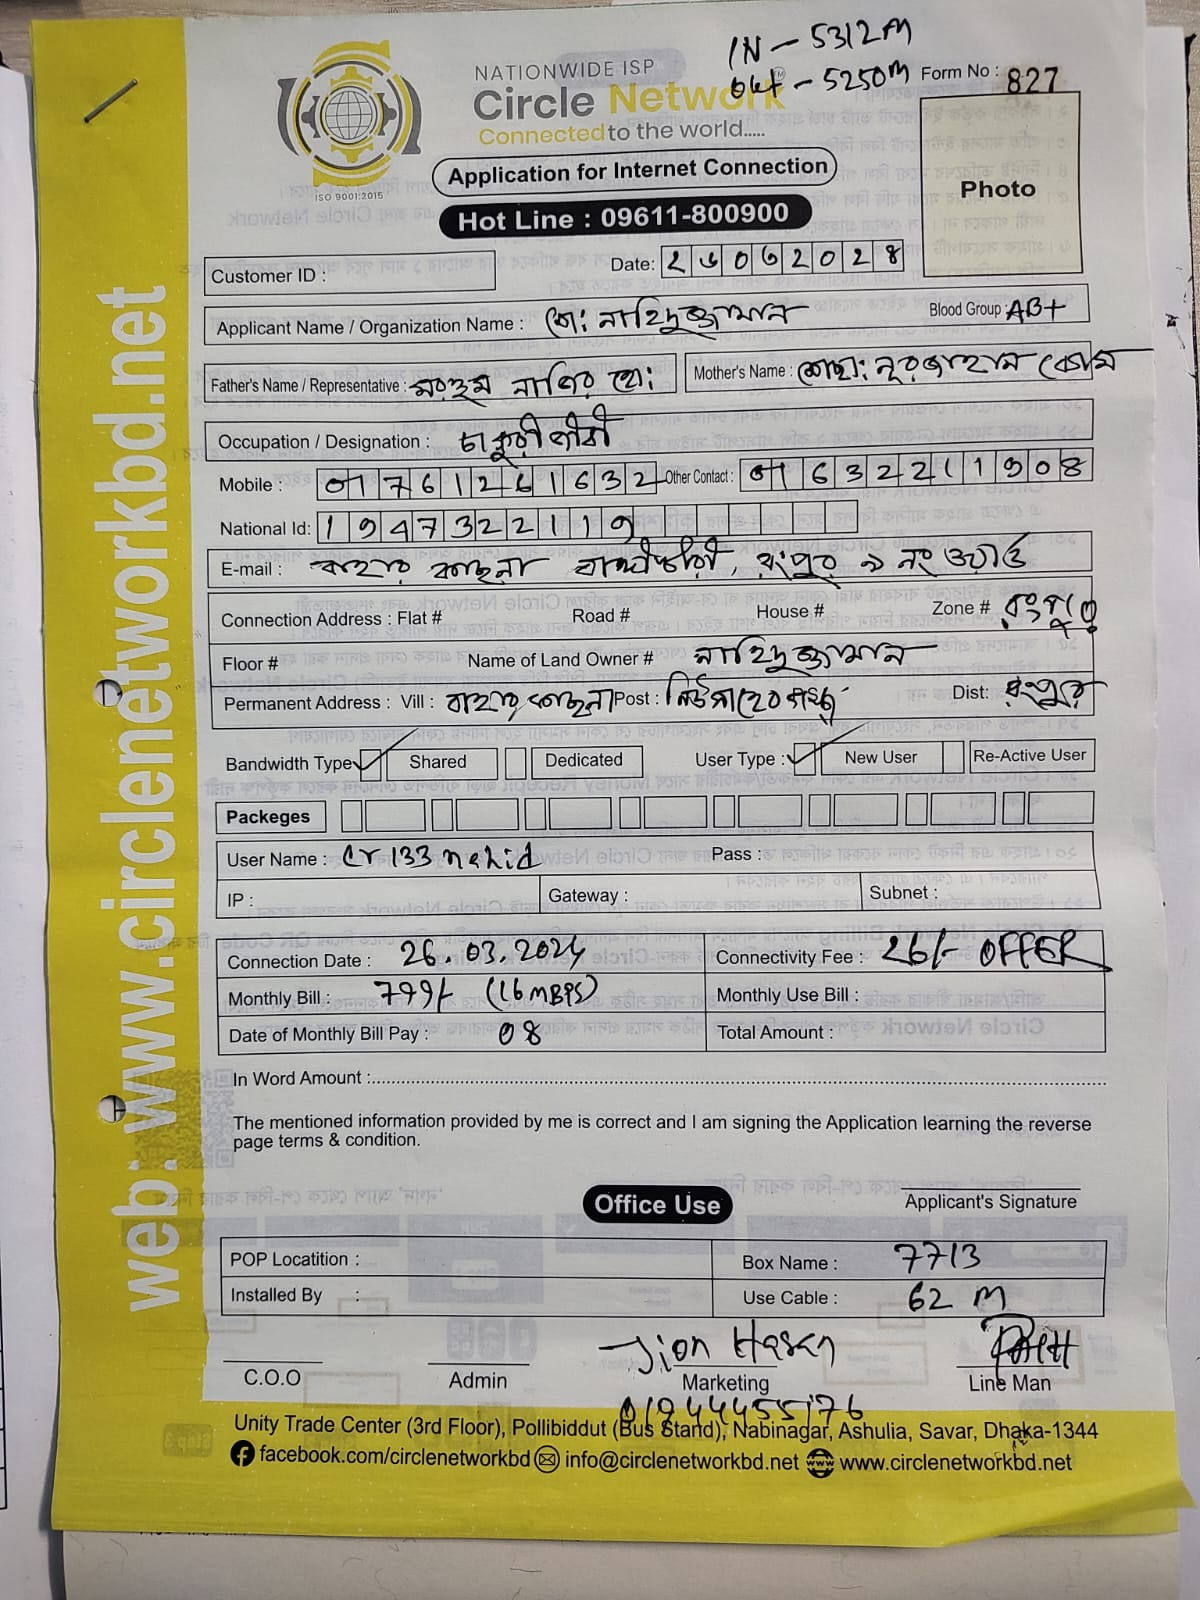 IN - 5312M
NATIONWIDE ISP
Out - 5250M
Form No : 827
Circle Network
Connected to the world.....
ISO 9001:2015
Application for Internet Connection
Photo
Hot Line : 09611-800900
Customer ID :
Date:
Applicant Name / Organization Name : মো: নাহিদুজ্জামান
Blood Group : AB+
Father's Name / Representative : মরহুম নাজির হো:
Mother's Name : মোছা: নূরজাহান বেগম
Occupation / Designation : চাকুরীজীবী
Mobile : 01761261632 Other Contact : 01632211908
National Id: 1947322119
E-mail : বাহার কাছনা, রংপুর ৯ নং ওয়ার্ড
Connection Address : Flat # Road # House # Zone # রংপুর
Floor # Name of Land Owner # নাহিদুজ্জামান
Permanent Address : Vill : বাহার কাছনা Post : Dist: রংপুর
Bandwidth Type Shared Dedicated User Type : New User Re-Active User
Packeges
User Name : cr133nahid Pass :
IP : Gateway : Subnet :
Connection Date : 26.03.2024 Connectivity Fee : 26/- OFFER
Monthly Bill : 799/- (16MBPS) Monthly Use Bill :
Date of Monthly Bill Pay : 08 Total Amount :
In Word Amount :
The mentioned information provided by me is correct and I am signing the Application learning the reverse
page terms & condition.
Office Use
Applicant's Signature
POP Locatition : Box Name : 7713
Installed By : Use Cable : 62 M
Jion Hasan
C.O.O Admin Marketing Line Man
01944455176
Unity Trade Center (3rd Floor), Pollibiddut (Bus Stand), Nabinagar, Ashulia, Savar, Dhaka-1344
facebook.com/circlenetworkbd info@circlenetworkbd.net www.circlenetworkbd.net
web: www.circlenetworkbd.net